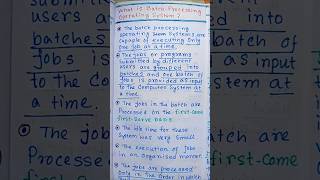 What is Batch Processing
Operating System?
The batch processing
operating System Systems are
capable of executing Only
One job at a time.
The jobs or programs
submitted by different
users are grouped into
batches and one batch of
jobs is provided as input
to the Computer System at
a time.
The jobs in the batch are
Processed on the first-come
first-Serve basis.
The idle time for these
System was very Small
The execution of jobs
in an organised manner.
The jobs are processed
Only in the Order in which
users
into
batches
of
jobs is
as input
to the Co
System at
a time.
The jobs
are
Processed
first-Come
first-Serv